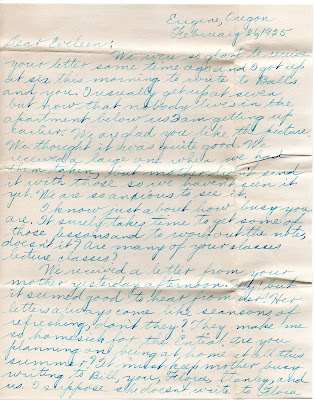 Eugene, Oregon
February 26, 1925
Dear Eveleen:
We were so glad to receive
your letter some time ago and I got up
at six this morning to write to Balls
and you. I usually get up at seven
but now that nobody lives in the
apartment below us I am getting up
earlier. We are glad you like the picture.
We thought it was quite good. We
received a large one when we had
them taken, but mother didn't send
it with those so we haven't seen it
yet. We are so anxious to see it.
I know just about how busy you
are. It surely takes time to get some of
those lessons and to work out the notes,
doesn't it? Are many of your classes
lecture classes?
We received a letter from your
mother yesterday afternoon. Oh! but
it seemed good to hear from her! Her
letters always come like seasons of
refreshing, don't they? They make me
so homesick for the Entiat. Are you
planning on being at home at all this
summer? It must keep mother busy
writing to Bill, you, Flora, Stanley, and
us. I suppose she doesn't write to Flora